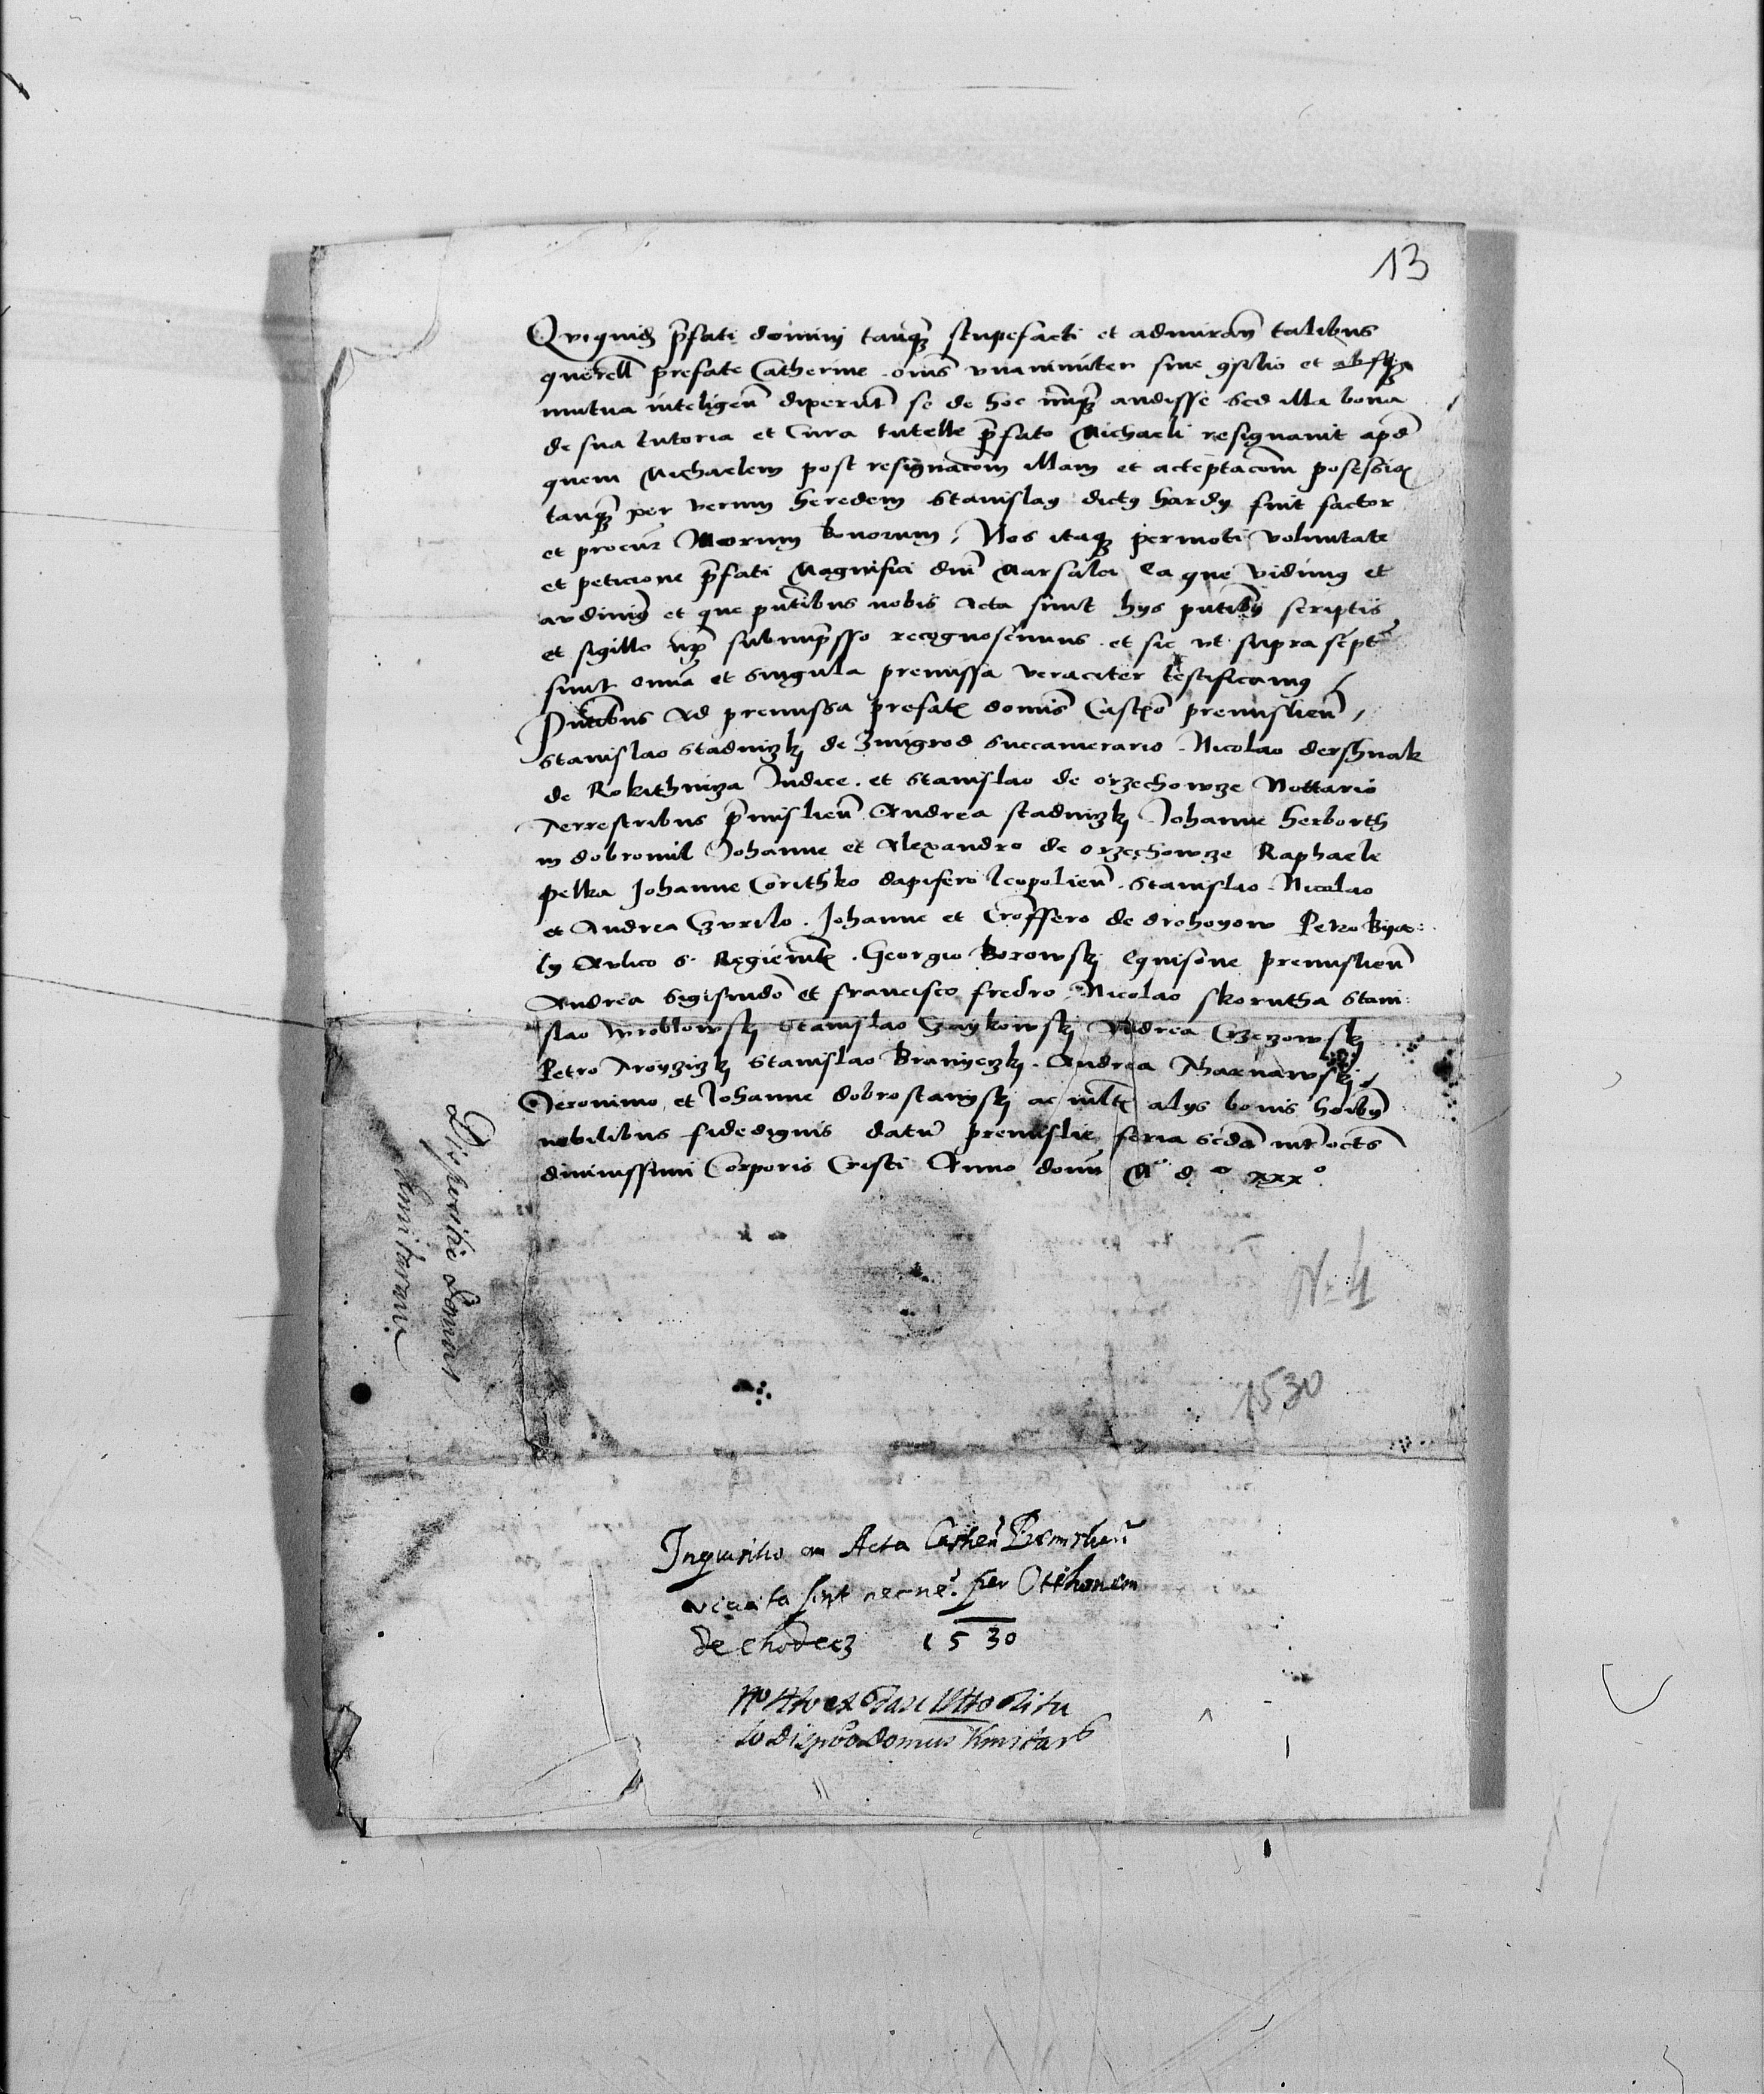 13
Qviquid p̄fati dominj tanq̃ stupefacti et admirañ talibus
querell̃ prefate Catherine om̃s vnanimiter sine 9silio et absq̃
mutua inteligeñ dixerūt se de hoc nūq̃ audisse Sed illa bona
de sua tutoria et Cura tutelle p̄fato Michaeli resignauit apud
quem Michaelem post resignacōm illam et acceptacōm possessio͠
tanq̃ per verum heredem Stanislay dicty hardy fuit factor
et procur̃ illorum bonorum, Nos itaq̃ permoti voluntate
et peticione p̄fati Magnifici dn̄i Marsalci Ea que vidim9 et
audiuim9 et que pn̄tibus nobis Acta sunt hys pn̄tiby scriptis
et sigillo nr̃o subimp̃sso recognoscimus et sic vt supra scpt̃
sunt om̃ia et Singula premissa veraciter testificamus /
Pn̄tibus Ad premissa prefat͠ domi͠s Cast͠no premislieñ,
Stanislao Stadnizkj de Zmigrod Succamerario Nicolao dershnak
de Rokithniza Judice et Stanislao de orzechowze Nottario
Terrestribus p̄mislieñ Andrea stadnizkj Johanne herborth
in dobromil Johanne et Alexandro de orzechowze Raphaele
pelka Johanne Corithko dapifero leopolieñ Stanislao Nicolao
et Andrea Czvrilo Johanne et Croffsero de drohoyow Petro Bya:
ly Avlico S. Regie Georgio Borowskj premislieñ
Andrea Sigismdo et francisco fredro Nicolao skorutha Stani:
slao Wroblowskj Stanislao Czaykowskj Andrea Czeczowskj
Petro Stanislao Branyczkj Andrea Tharnawskj
Jeronimo et Johanne dobrostanyskj ac mlt͠ alys bonis hoiby
nobilibus fidedignis datū premislie feria Scdã infr̃ octs̄
diuinissimi Corporis Cristi Anno domi M° d° xxx°
Dispositio Domus
Kmitarum
N. 4
1530
Inquisitio an Acta Casteñ Premislieñ
viciata sint necne? per Otthonem
de Chodecz 1530
Nro 4to ex Fasc Vtto Titu
lo dispōō domus Kmitar